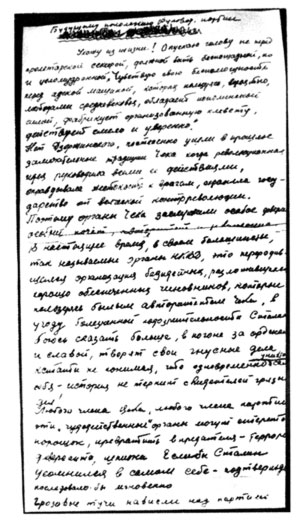 Будущему поколению руковод. партии
Ухожу из жизни! Опускаю голову не перед
пролетарской секирой, должной быть беспощадной, но
и целомудренной. Чувствую свою беспомощность
перед адской машиной, которая пользуясь, вероятно,
методами средневековья, обладает исполинской
силой, фабрикует организованную клевету,
действует смело и уверенно.
Нет Дзержинского, постепенно ушли в прошлое
замечательные традиции Чека когда революционная
идея руководила всеми её действиями,
оправдывала жестокость к врагам, охраняла госу-
дарство от всяческой контрреволюции.
Поэтому органы Чека заслужили особое доверие
особый почёт,
В настоящее время, в своем большинстве,
так называемые органы НКВД, это переродив-
шаяся организация безыдейных, разложившихся
хорошо обеспеченных чиновников, которые
пользуясь былым авторитетом Чека, в
угоду болезненной подозрительности Сталина
боюсь сказать больше, в погоне за орденами
и славой, творят свои гнусные дела
кстати не понимая, что одновременно уничт.
себя – история не терпит свидетелей грязных
дел!
Любого члена Цека, любого члена партии
эти "чудодейственные" органы могут стереть в
порошок, превратить в предателя – террориста
диверсанта, шпиона Если бы Сталин
усомнился в самом себе – подтверждение
последовало бы мгновенно
Грозовые тучи нависли над партией